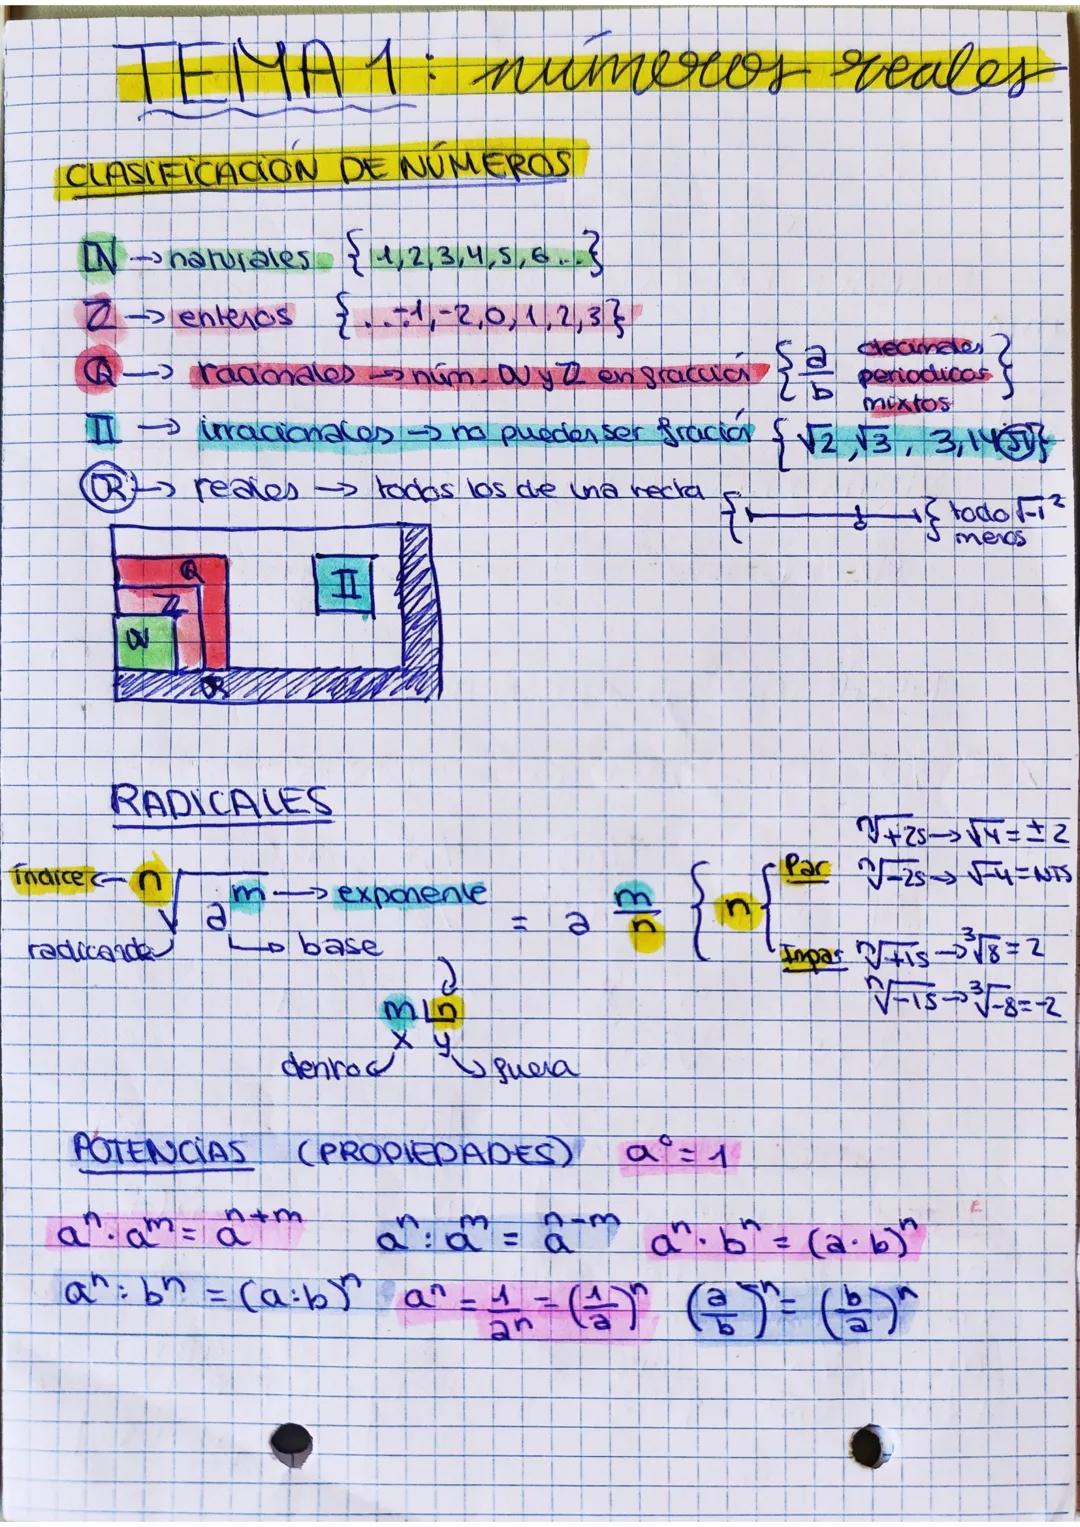 TEMA 1: números reales
CLASIFICACIÓN DE NÚMEROS
ℕ → naturales {1,2,3,4,5,6...}
ℤ → enteros {...-1,-2,0,1,2,3}
ℚ → racionales → núm. ℕ y ℤ en gracción { a/b decimales periodicos mixtos }
𝕀 → irracionales → no pueden ser fración {√2, √3, 3,14 π}
ℝ → reales → todos los de una recta { } todo menos √-1²
ℚ
ℤ
ℕ
𝕀
ℝ
RADICALES
índice ← n √ a^m → exponente = a^(m/n) { n {
radicando
base
Par ⁿ√+2s → √4 = ±2
ⁿ√-2s → √-4 = NTS
Inpar ⁿ√+1s → ³√8 = 2
ⁿ√-1s → ³√-8 = -2
m n
x y
denro
guera
POTENCIAS (PROPIEDADES) a⁰ = 1
aⁿ · a^m = a^(n+m) aⁿ : a^m = a^(n-m) aⁿ · bⁿ = (a·b)ⁿ
aⁿ : bⁿ = (a:b)ⁿ aⁿ = 1/aⁿ = (1/a)ⁿ (a/b)ⁿ = (b/a)ⁿ